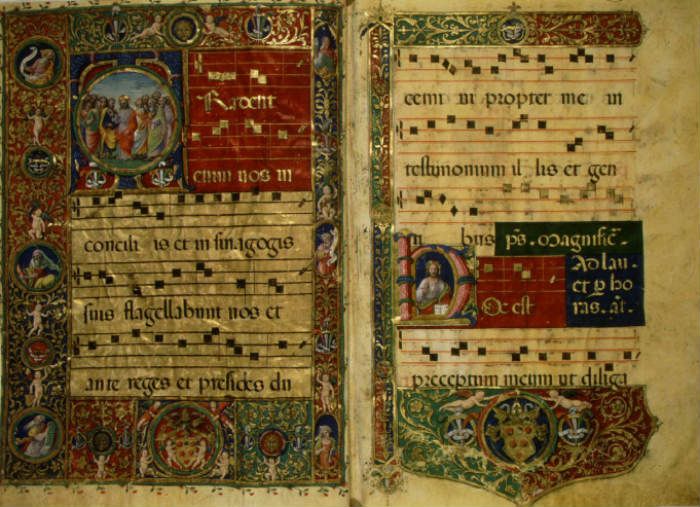 Tradent
enim uos in
concili is et in sinagogis
suis flagellabunt uos et
ante reges et presides du
cemi ni propter me in
testimonium il lis et gen
ti bus ps. Magnific.
Ad lau.
et p ho
Hoc est ras. at.
preceptum meum ut diliga